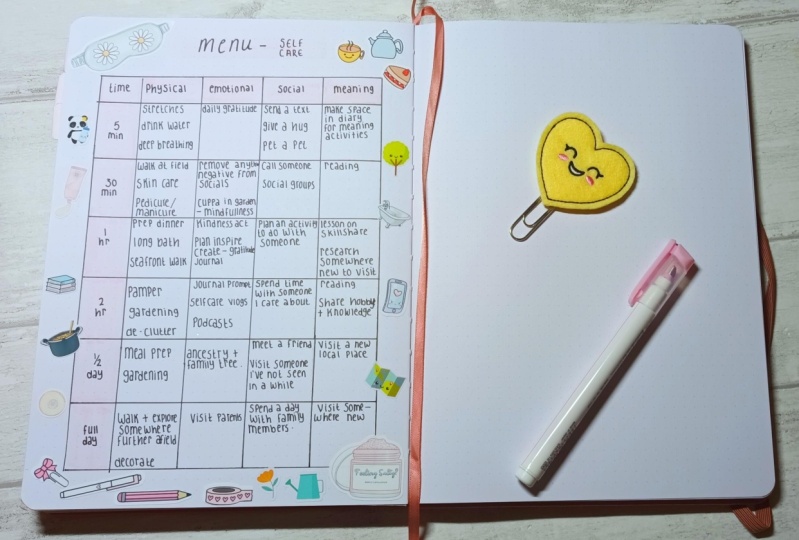 menu - SELF CARE
time physical emotional social meaning
5 min
stretches
drink water
deep breathing
daily gratitude
send a text
give a hug
pet a pet
make space
in diary
for meaning
activities
30 min
walk at field
skin care
pedicure/
manicure
remove anything
negative from
socials
cuppa in garden
- mindfullness
call someone
social groups
reading
1 hr
prep dinner
long bath
seafront walk
kindness act
plan inspire
create - gratitude
journal
plan an activity
to do with
someone
lesson on
skillshare
research
somewhere
new to visit
2 hr
pamper
gardening
de-clutter
journal prompt
selfcare vlogs
podcasts
spend time
with someone
I care about
reading
share hobby
+ knowledge
1/2 day
meal prep
gardening
ancestry +
family tree
meet a friend
visit someone
I've not seen
in a while
visit a new
local place
full day
walk + explore
somewhere
further afield
decorate
visit parents
spend a day
with family
members.
visit some-
where new
Feeling Salty?